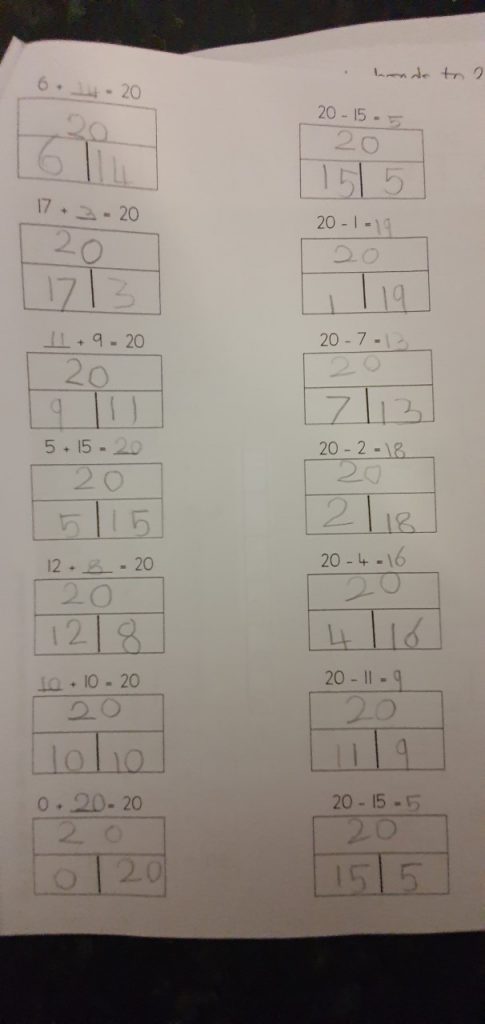 6 + 14 = 20
20
6 14
17 + 3 = 20
20
17 3
11 + 9 = 20
20
9 11
5 + 15 = 20
20
5 15
12 + 8 = 20
20
12 8
10 + 10 = 20
20
10 10
0 + 20 = 20
20
0 20
20 - 15 = 5
20
15 5
20 - 1 = 19
20
1 19
20 - 7 = 13
20
7 13
20 - 2 = 18
20
2 18
20 - 4 = 16
20
4 16
20 - 11 = 9
20
11 9
20 - 15 = 5
20
15 5